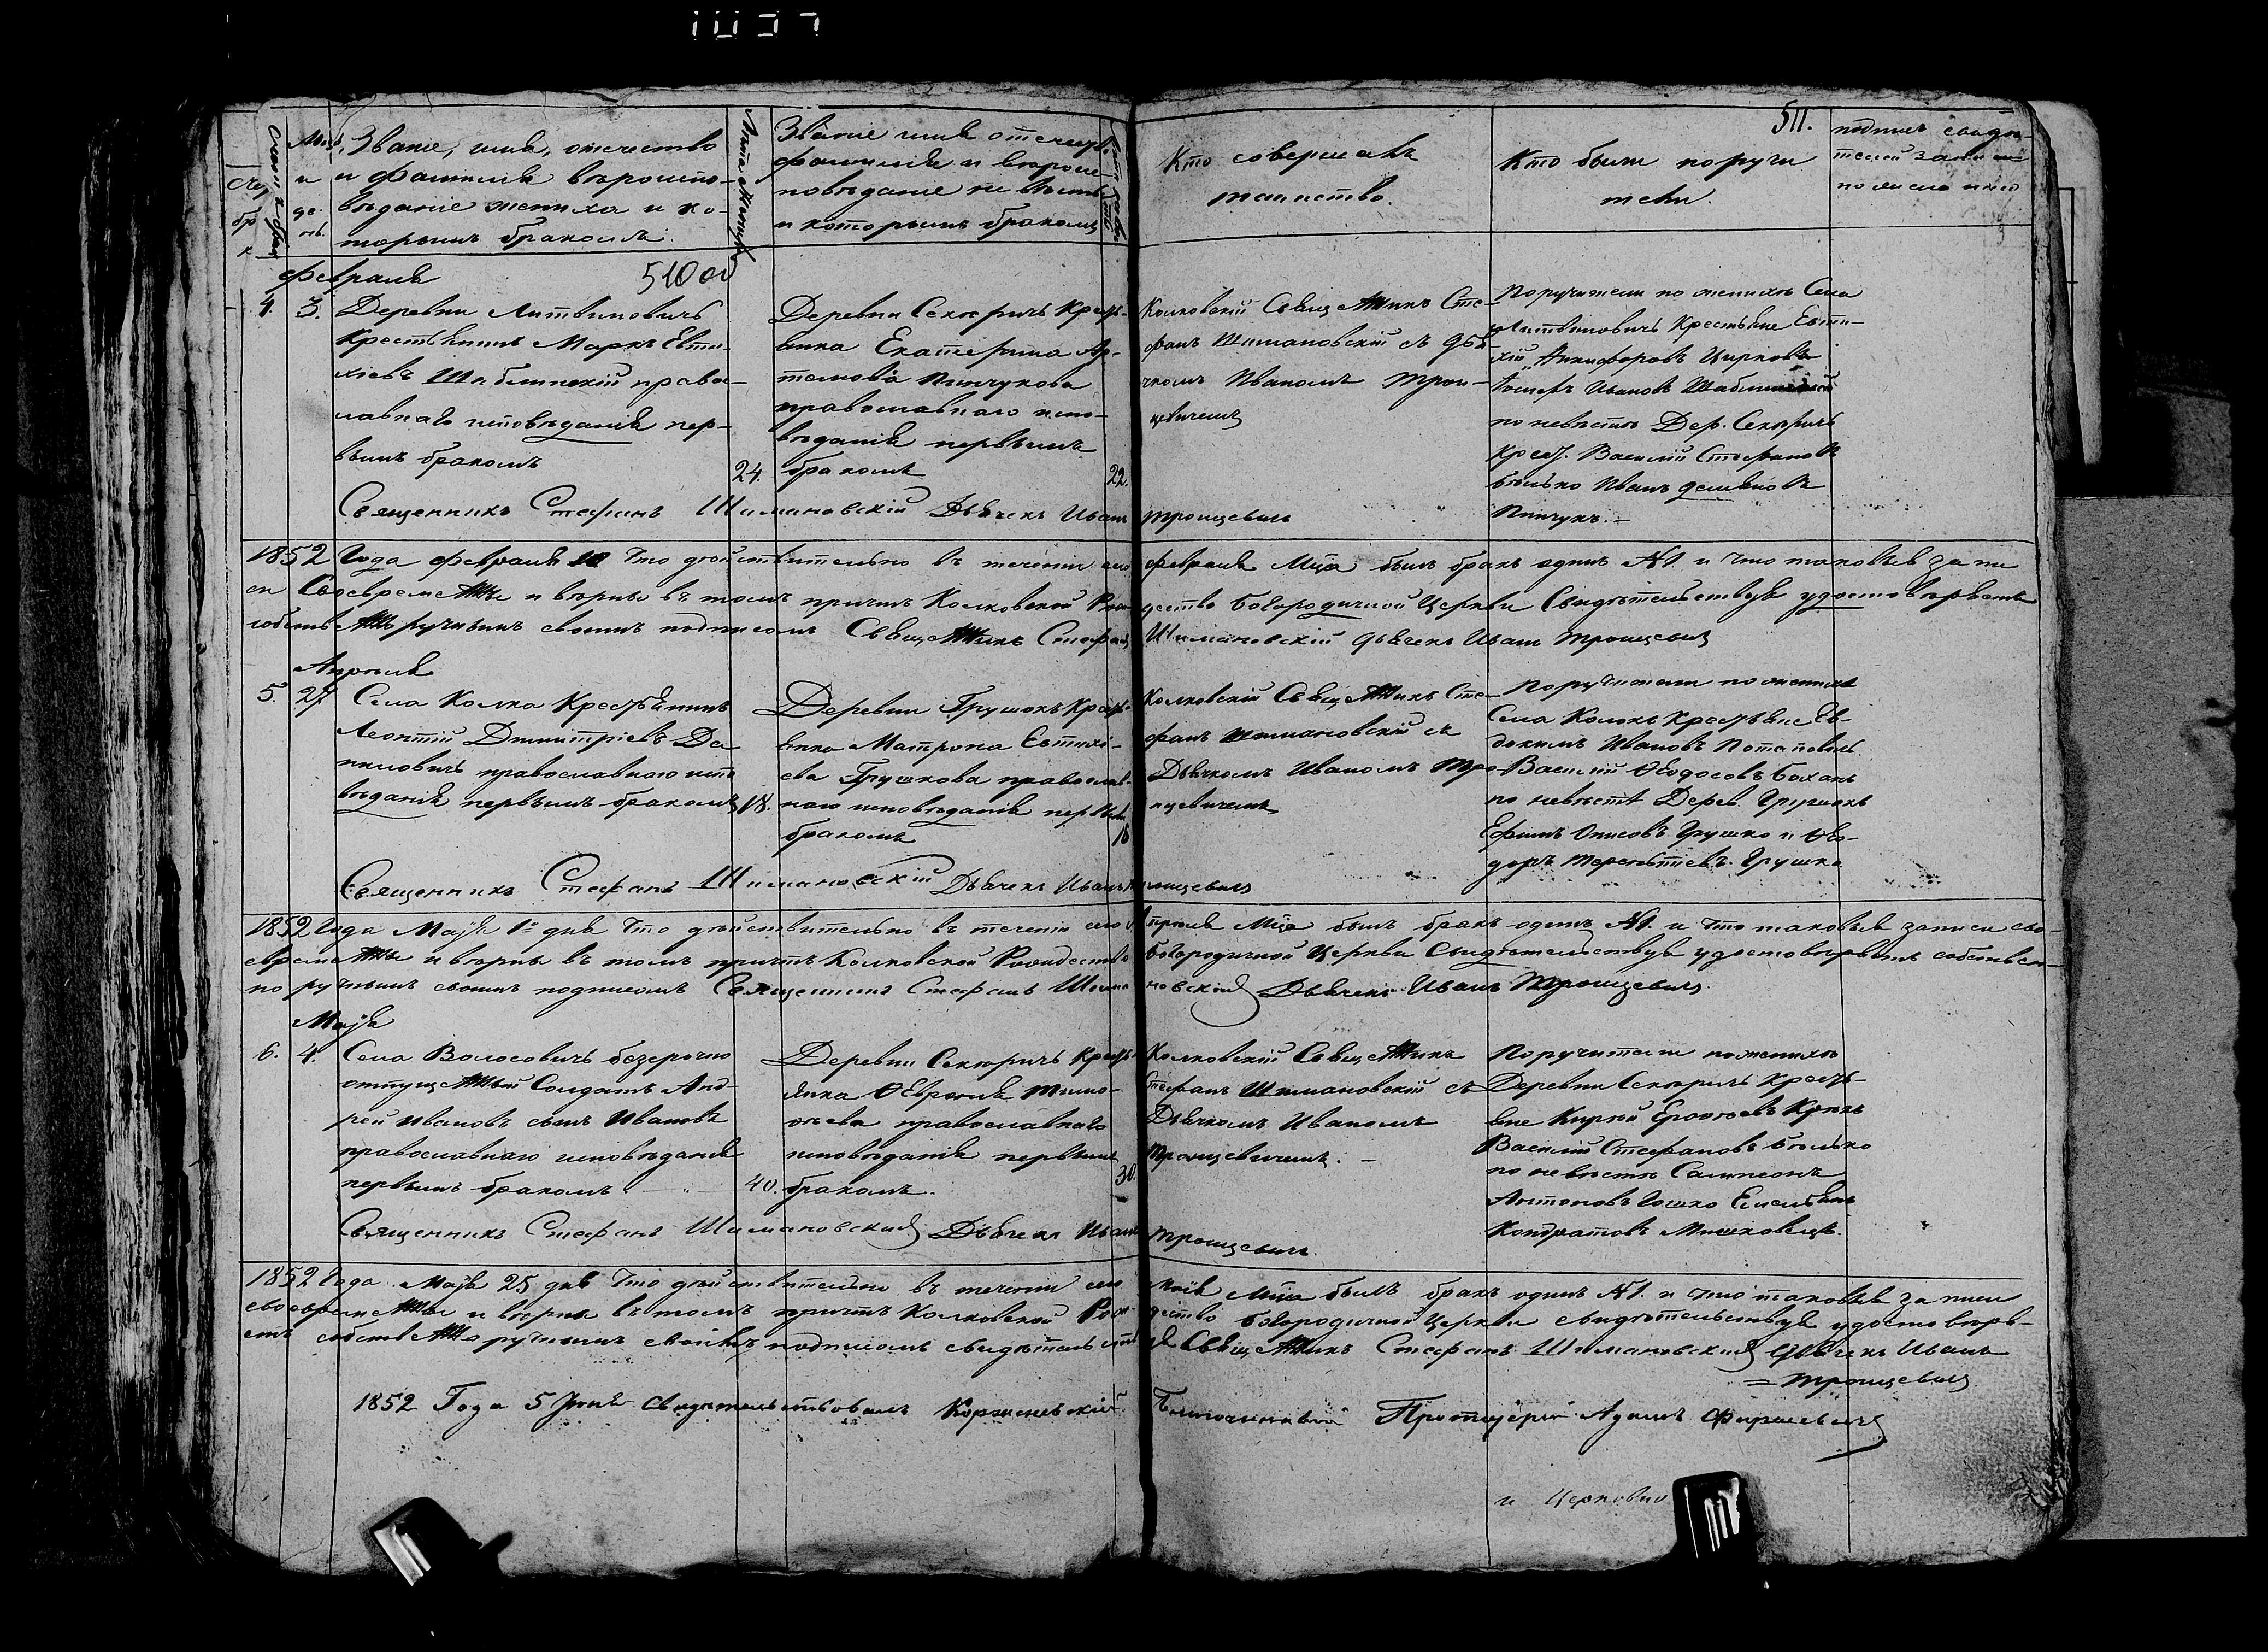 511.
Счет бра
Мца и де нь.
Званіе, имя, отечество
и фамилія вѣроиспо-
вѣданіе жениха и ко-
торымъ бракомъ.
Лѣта жениха
Званіе имя отечеств.
фамилія и вѣроис
повѣданіе невѣсты
и которымъ бракомъ
Кто совершалъ
таинство.
Кто были поручи
тели.
подпись свидѣ
телей записи
по желанію
510 об
Февраля
4. 3.
Деревни Литвиновичъ
Крестьянинъ Маркъ Евти-
хіевъ Шаблинскій право-
славнаго исповѣданія пер-
вымъ бракомъ
24.
Деревни Секиричъ Крестъ-
янка Екатерина Ар-
темова Пинчукова
православнаго испо-
вѣданія первымъ
бракомъ
22.
Колковскій Священникъ Сте-
фанъ Шимановскій съ Дья
чкомъ Иваномъ Трои-
цевичемъ
Поручители по женихѣ Села
Литвиновичъ Крестьяне Евти-
хій Никифоровъ
Иванов Шаблинскій
по невѣстѣ Дер. Секиричъ
Крест. Василій Стефановъ
Бѣлько Иванъ Демяновъ
Пинчукъ.
Священникъ Стефанъ Шимановскій Дьячекъ Иванъ Троицевичъ
1852 Года февраля Что дѣйствительно въ теченіи сего февраля Мца былъ бракъ одинъ №1. и что таковыя запи
си Своевременны и вѣрны въ томъ причтъ Колковской Рож дество Богородичной Церкви Свидѣтельствуя удостовѣряетъ
собственноручнымъ своимъ подписомъ Священникъ Стефанъ Шимановскій Дьячекъ Иванъ Троицевичъ
Апрѣля
5. 27.
Села Колка Крестьянинъ
Леонтій Димитріевъ Да
ниловичъ православнаго испо
вѣданія первымъ бракомъ
18.
Деревни Грушокъ Крестъ-
янка Матрона Евтихі-
ева Грушкова православ-
наго исповѣданія первымъ
бракомъ
18
Колковскій Священникъ Сте-
фанъ Шимановскій съ
Дьячкомъ Иваномъ Тро-
ицевичемъ
Поручители по женихѣ
Села Колокъ Крестьяне Ев-
докимъ Ивановъ Потаповичъ
Василій Ѳеодосовъ Баханъ
по невѣстѣ Дерев. Грушокъ
Ефимъ Онисовъ Грушко и Ѳео-
доръ Терентіевъ Грушко
Священникъ Стефанъ Шимановскій Дьячекъ Иванъ Троицевичъ
1852 Года Маія 1го дня Что дѣйствительно въ теченіи сего Апрѣля Мца былъ бракъ одинъ №1. и что таковыя записи сво-
евременны и вѣрны въ томъ причтъ Колковской Рождество Богородичной Церкви Свидѣтельствуя удостовѣряетъ собствен-
но ручнымъ своимъ подписомъ Священникъ Стефанъ Шима новскій Дьячекъ Иванъ Троицевичъ
Маія
6. 4.
Села Волосовичъ безсрочно
отпущенный Солдатъ Анд-
рей Ивановъ сынъ Ивановъ
православнаго исповѣданія
первымъ бракомъ
40.
Деревни Секиричъ Кресть
янка Ѳевронія Тимо-
ѳеева православнаго
исповѣданія первымъ
бракомъ.
30.
Колковскій Священникъ
Стефанъ Шимановскій съ
Дьячкомъ Иваномъ
Троицевичемъ.
Поручители по женихѣ
Деревни Секиричъ Кресть-
яне Кирѣй
Василій Стефановъ Бѣлько
по невѣстѣ Сампсонъ
Антоновъ Гошко Емельянъ
Кондратовъ Мишковецъ.
Священникъ Стефанъ Шимановскій Дьячекъ Иванъ Троицевичъ.
1852 Года Маія 25 дня Что дѣйствительно въ теченіи сего Маія Мца былъ бракъ одинъ №1. и что таковыя записи
своевременны и вѣрны въ томъ причтъ Колковской Рож дество Богородичной Церкви свидѣтельствуя удостовѣря-
етъ собственно ручнымъ своимъ подписомъ Священникъ Стефанъ Шимановскій Дьячекъ Иванъ
Троицевичъ
1852 Года 5 Іюня Свидѣтельствовалъ Благочинный Протоіерей Адамъ
и Церковно